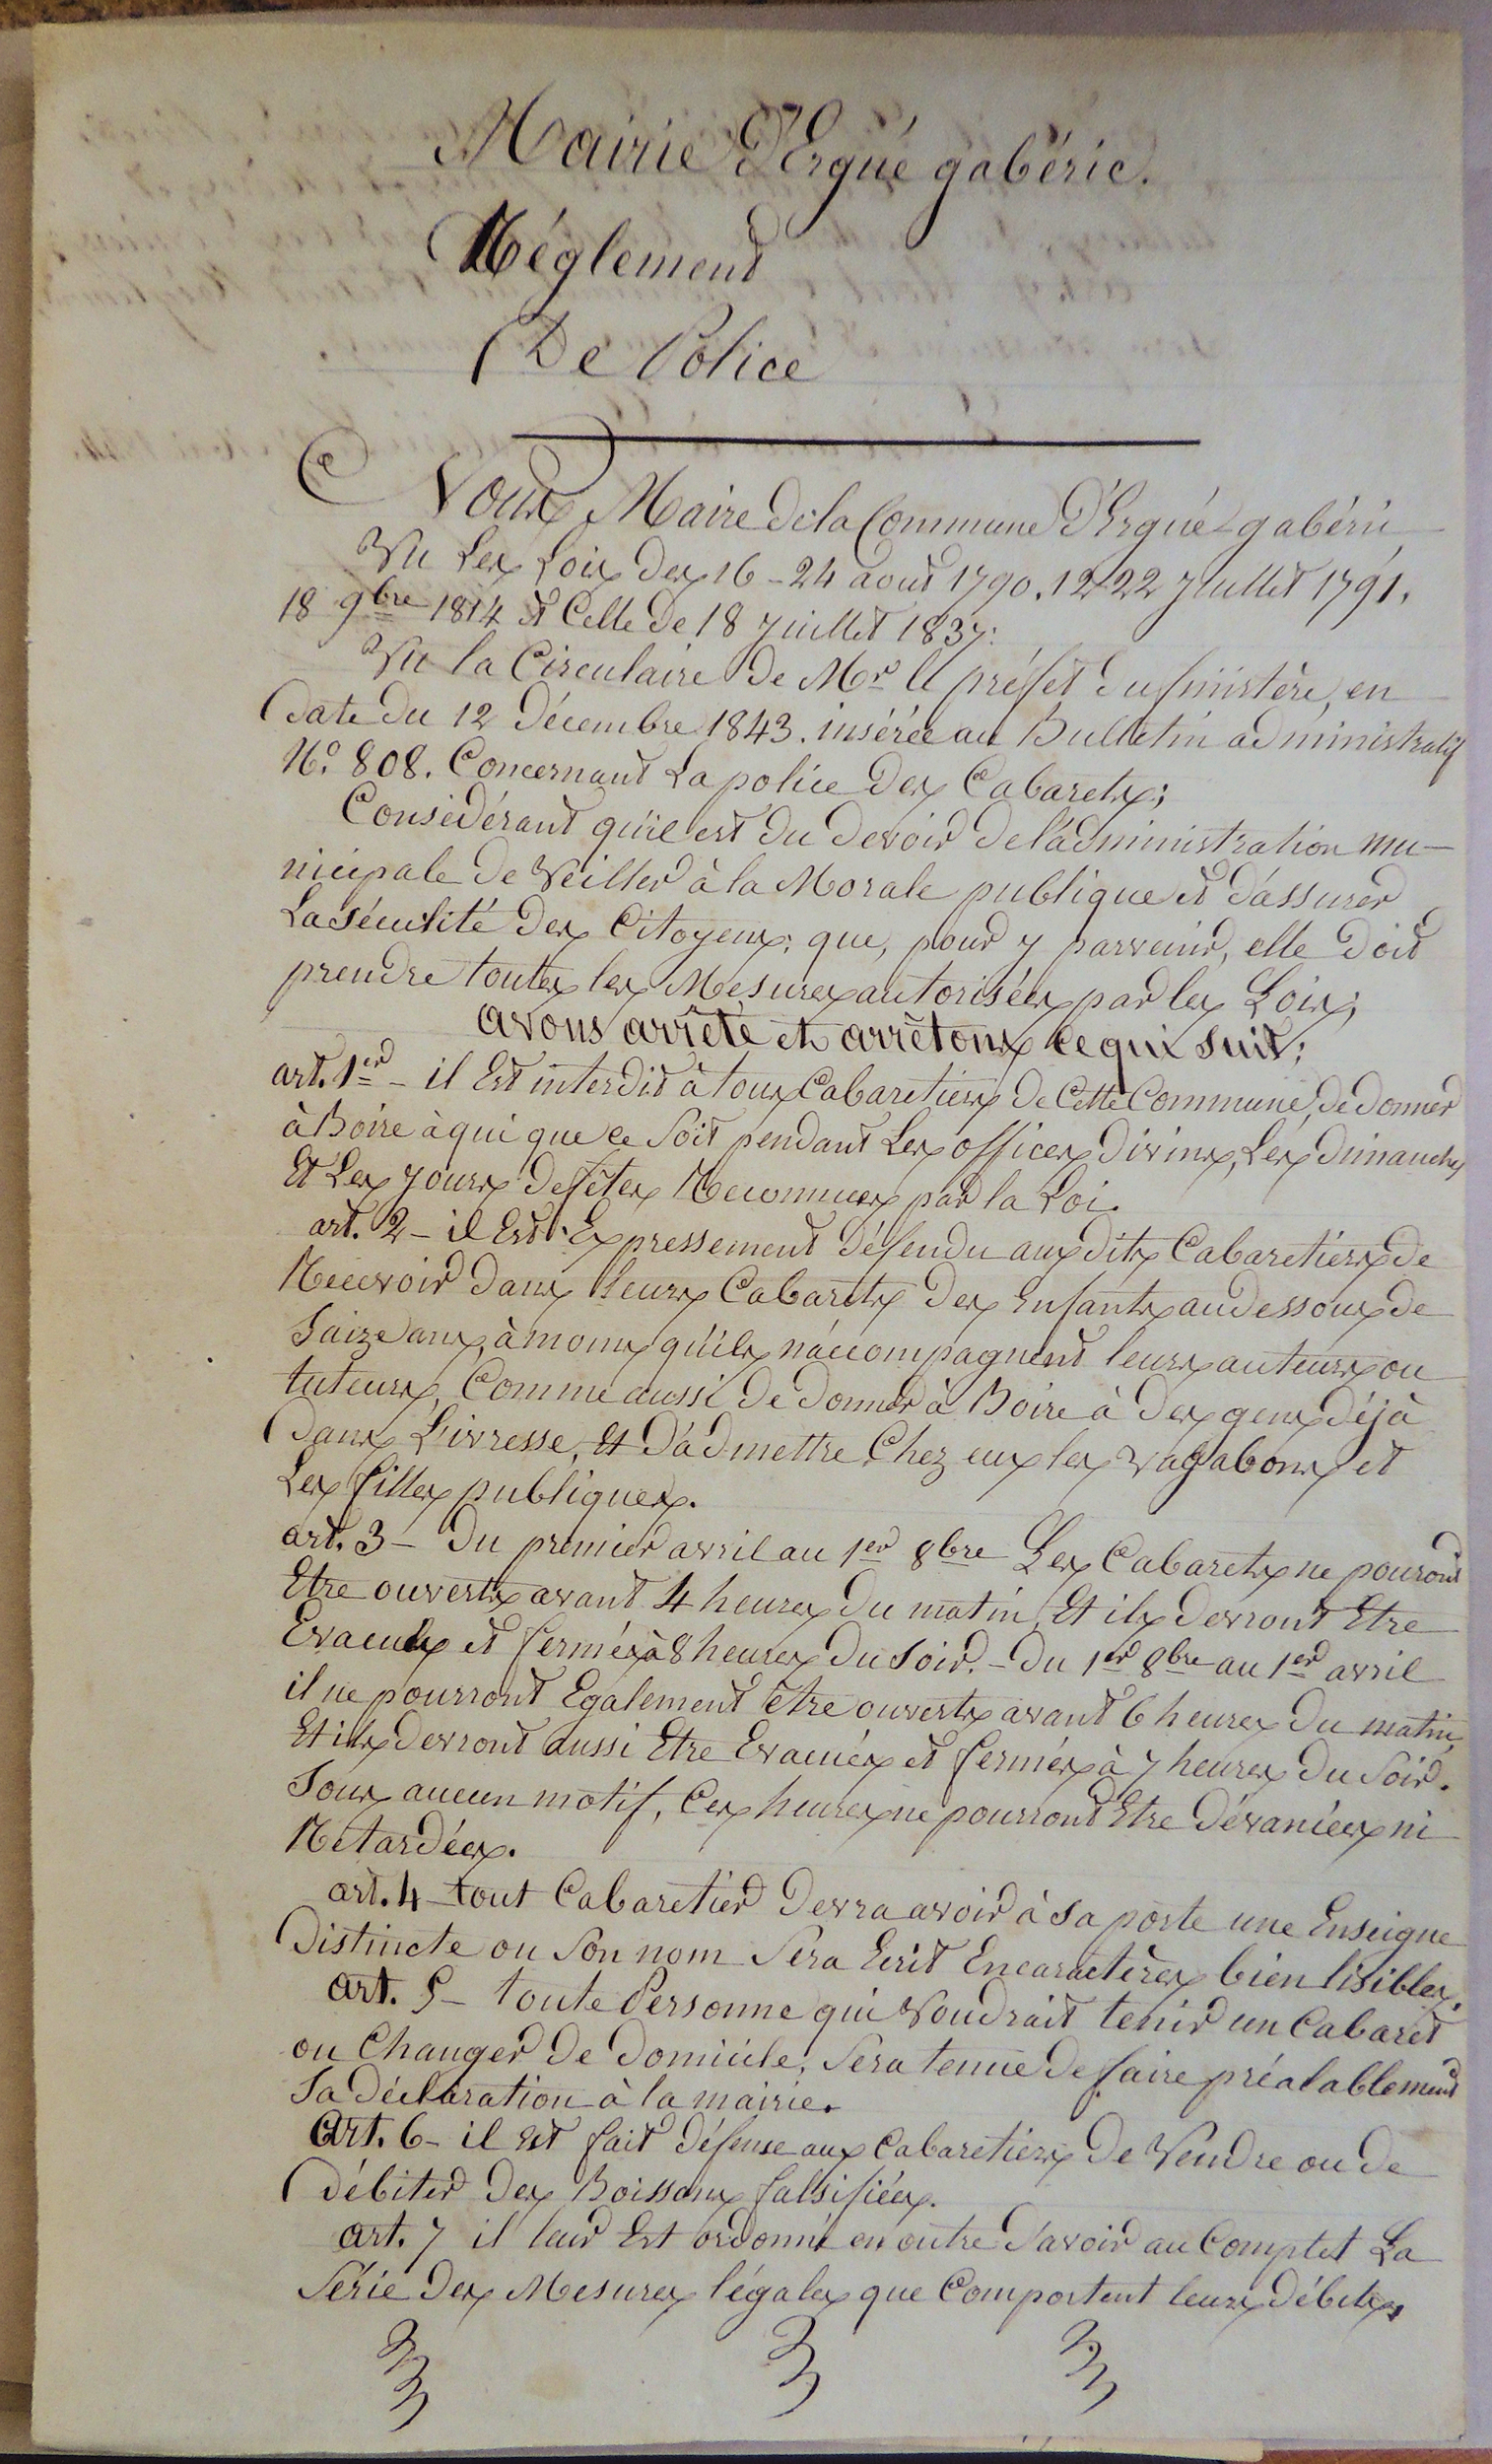 Mairie d'Ergué gabéric.
Réglement
De Police
Nous Maire de la Commune d'Ergué-gabéric
Vu Les Lois des 16-24 aout 1790. 12-22 juillet 1791.
18 9bre 1814 et Celle de 18 juillet 1837:
Vu la Circulaire de Mr le préfet du finistère, en
date du 12 décembre 1843. insérée au Bulletin administratif
No. 808. Concernant La police des Cabarets;
Considérant qu'il est du devoir de l'administration mu-
nicipale de Veiller à la Morale publique et d'assurer
La sécurité des Citoyens; que, pour y parvenir, elle doit
prendre toutes les Mesures autorisées par les Lois;
avons arrêté et arrêtons ce qui suit;
art. 1er - il Est interdit à tous Cabaretiers de Cette Commune, de donner
à Boire à qui que ce soit pendant Les offices divins, Les dimanches
Et Les jours de fêtes Reconnues par la Loi.
art. 2 - il Est Expressement défendu aux dits Cabaretiers de
Recevoir dans leurs Cabarets des Enfants au dessous de
Saize ans, à moins qu'ils n'accompagnent leurs auteurs ou
tuteurs, Comme aussi de donner à Boire à des gens déjà
dans L'ivresse, Et d'admettre Chez eux les vagabons et
Les filles publiques.
art. 3 - Du premier avril au 1er 8bre Les Cabarets ne pouront
Etre ouverts avant 4 heures du matin, Et ils devront Etre
Evacués et fermés à 8 heures du Soir. - Du 1er 8bre au 1er avril
il ne pourront Egalement être ouverts avant 6 heures du matin,
Et ils devront aussi Etre Evacués et fermés à 7 heures du Soir.
Sous aucun motif, Ces heures ne pourront Etre dévancées ni
Retardées.
art. 4 - tout Cabaretier devra avoir à sa porte une Enseigne
Distincte ou Son nom Sera Ecrit En caractères bien lisibles.
art. 5 - toute Personne qui Voudrait tenir un Cabaret
ou Changer de domicile, Sera tenue de faire préalablement
Sa déclaration à la mairie.
Art. 6 - il Est fait défense aux Cabaretiers de Vendre ou de
débiter des Boissons falsifiées.
art. 7 il leur Est ordonné en outre d'avoir au Complet La
Série des Mesures légales que Comportent leurs débits,